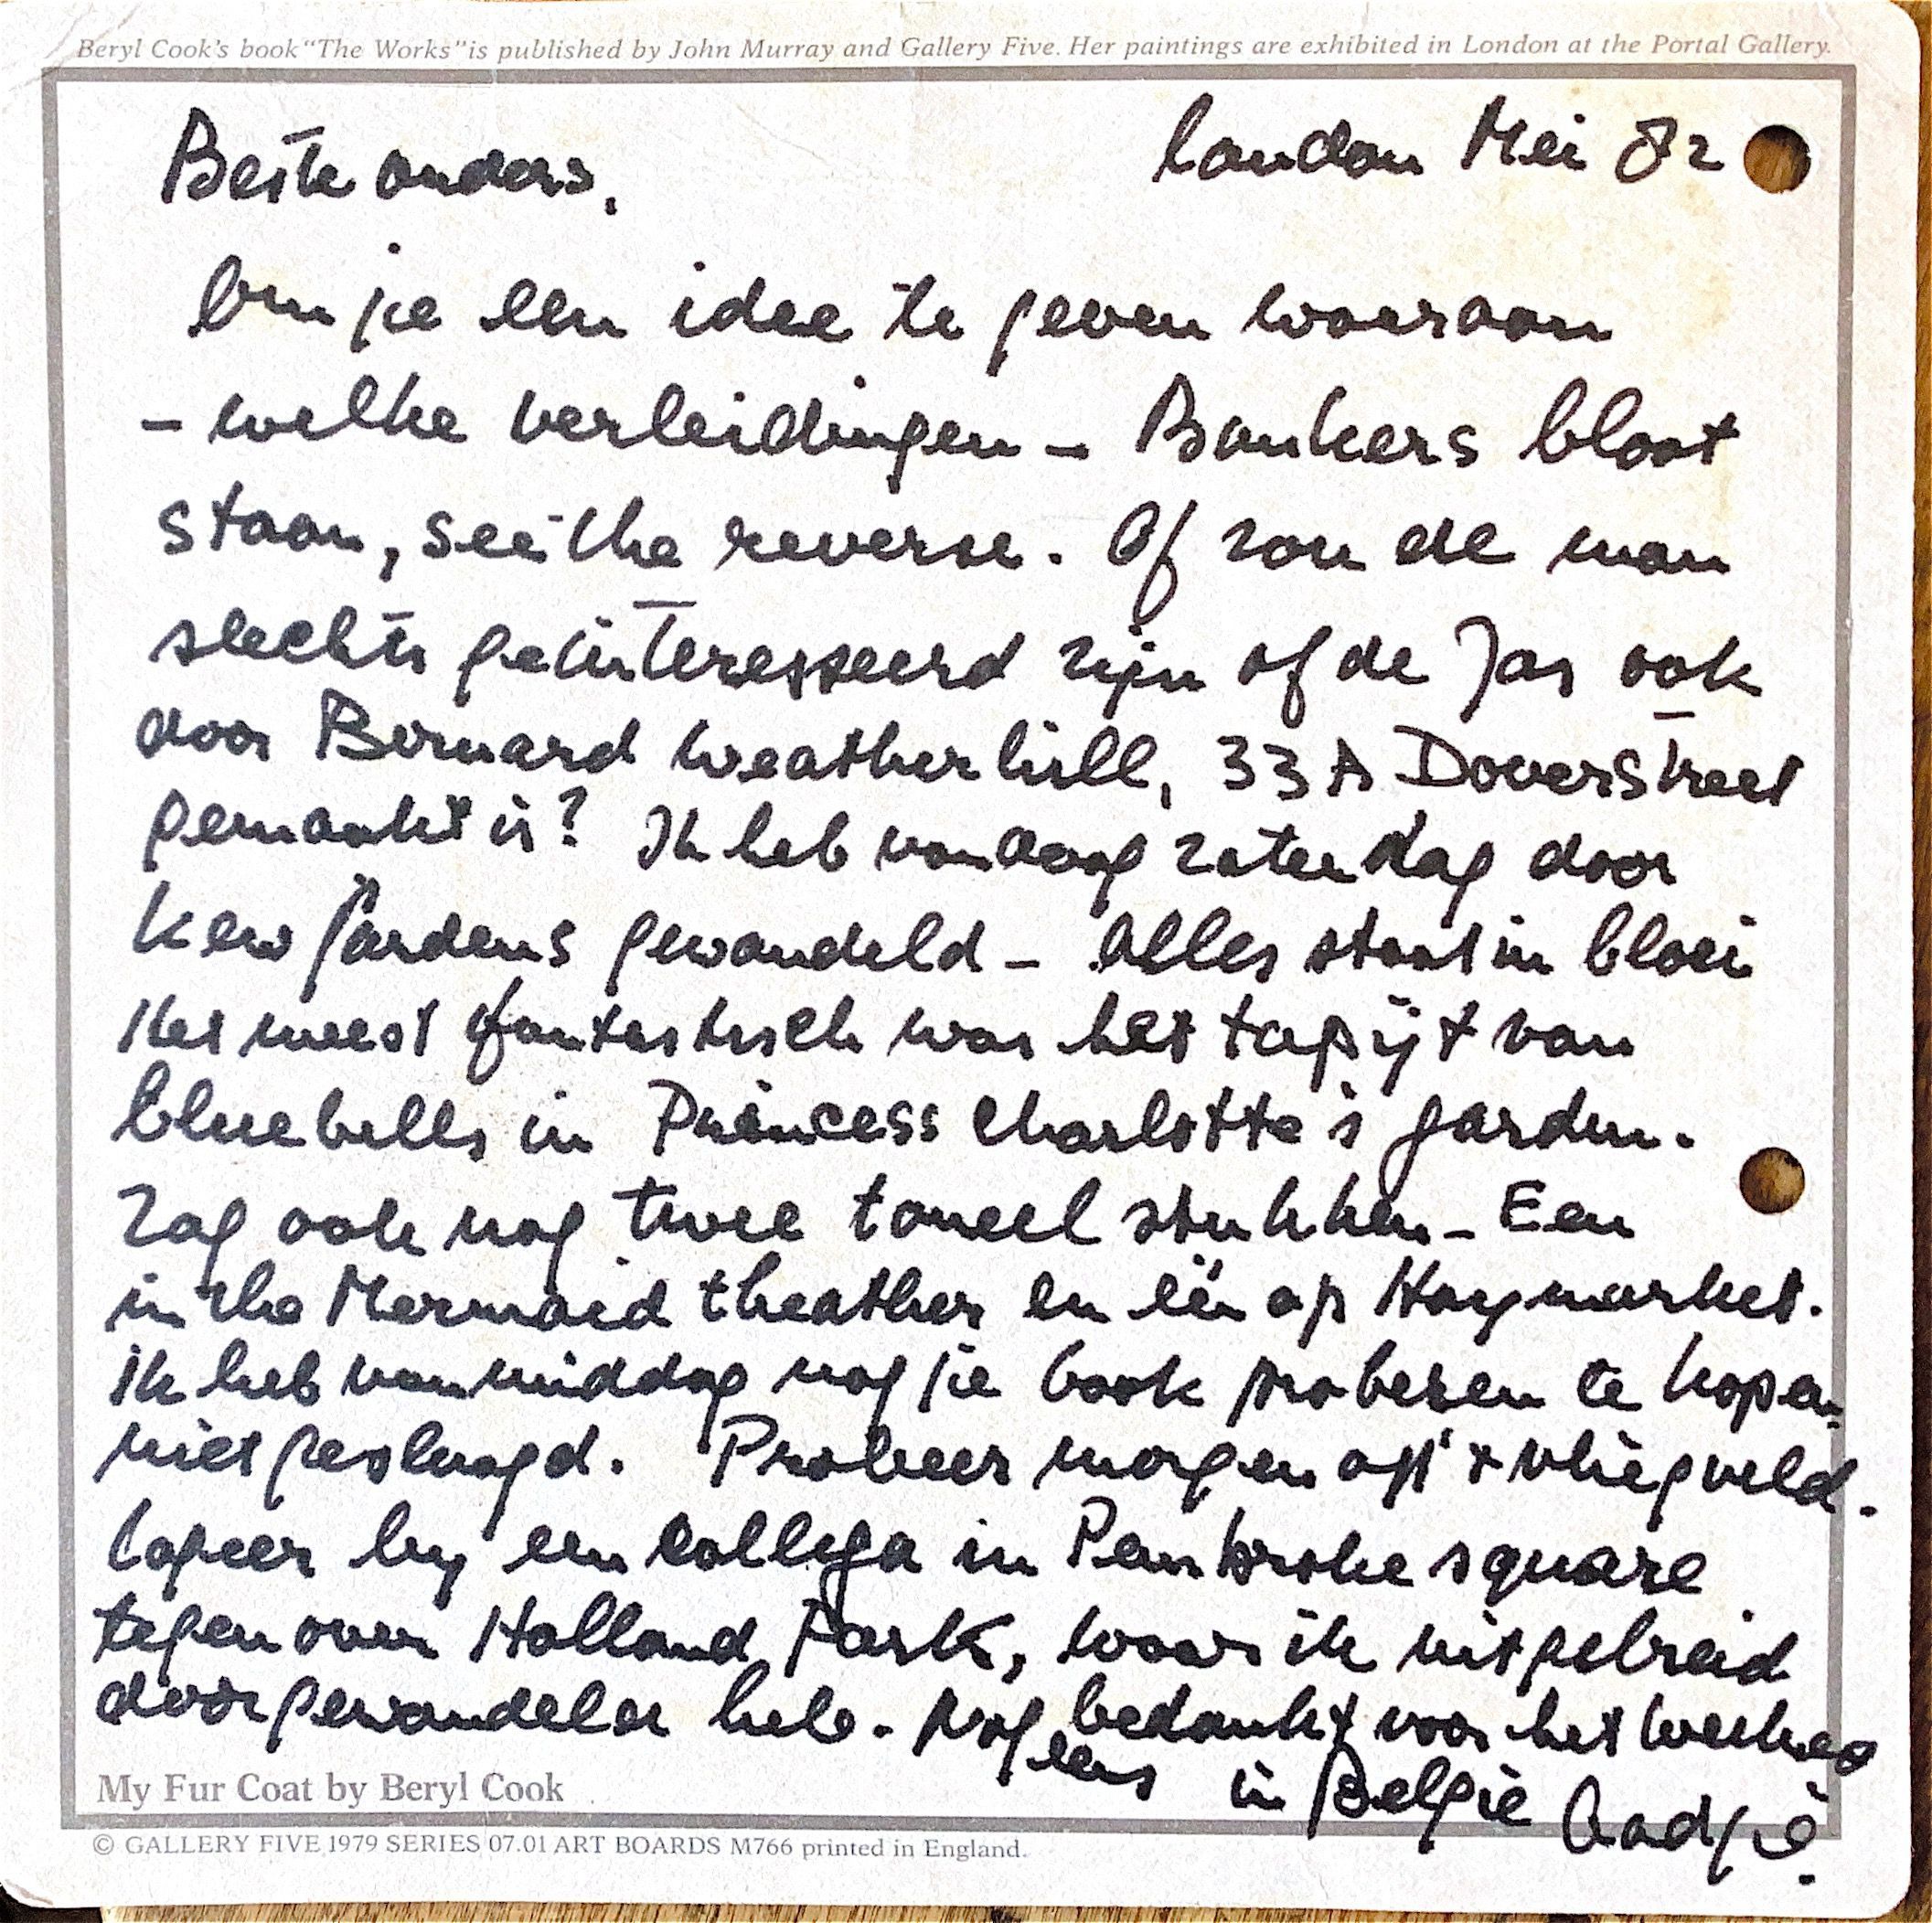 Beryl Cook's book "The Works" is published by John Murray and Gallery Five. Her paintings are exhibited in London at the Portal Gallery.
london Mei 82
Beste ouders,
Om je een idee te geven waaraan
- welke verleidingen - Bankers bloot
staan, see the reverse. Of zou de man
slechts geïnteresseerd zijn of de Jas ook
door Bernard Weatherhill, 33A Doverstreet
gemaakt is? Ik heb vandaag zaterdag door
Kew gardens gewandeld - Alles staat in bloei
Het meest fantastisch was het tapijt van
bluebells in Princess Charlotte's garden.
Zag ook nog twee toneel stukken - Een
in the Mermaid theather en één op Haymarket.
Ik heb vanmiddag nog je book proberen te kopen -
niet geslaagd. Probeer morgen op 't vliegveld.
Logeer by een collega in Pembroke square
tegenover Holland Park, waar ik uitgebreid
door gewandeld heb. Nog eens bedankt voor het weekend
in België Aadje.
My Fur Coat by Beryl Cook
© GALLERY FIVE 1979 SERIES 07.01 ART BOARDS M766 printed in England.